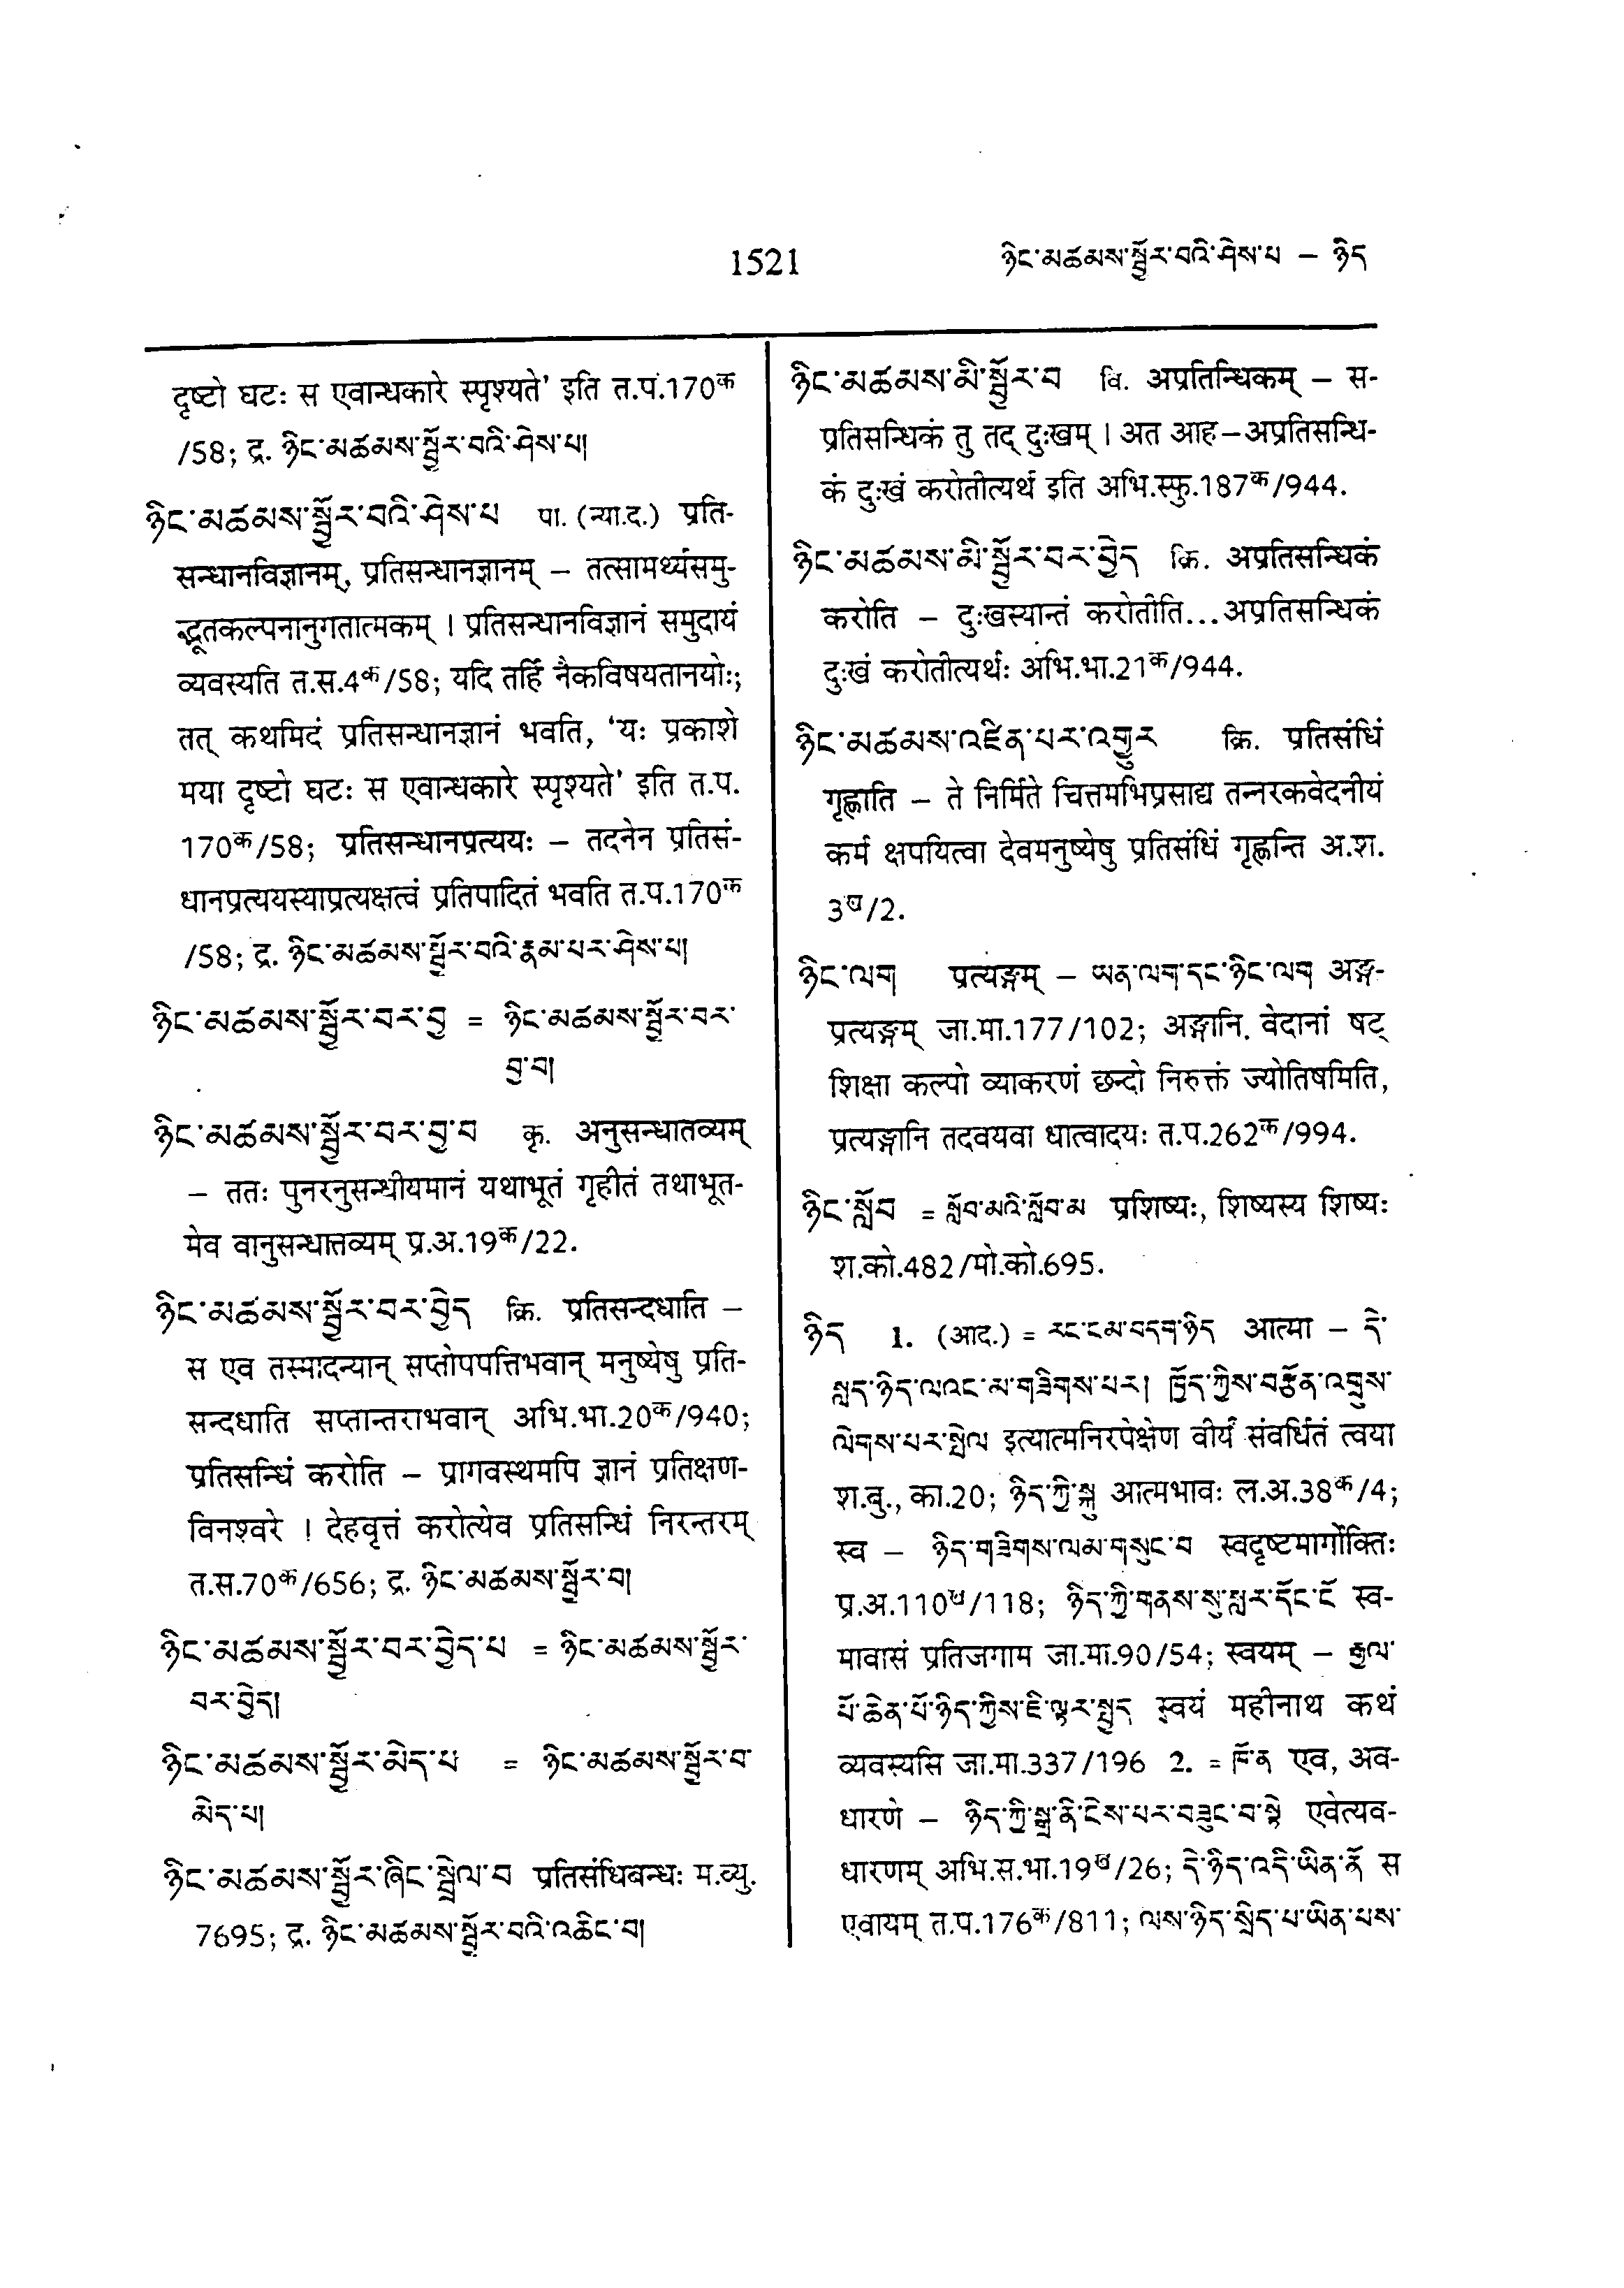 1521
ཉིང་མཚམས་སྦྱོར་བའི་ཤེས་པ – ཉིད
दृष्टो घटः स एवान्धकारे स्पृश्यते' इति त.प.170क
/58; द्र. ཉིང་མཚམས་སྦྱོར་བའི་ཤེས་པ།
ཉིང་མཚམས་སྦྱོར་བའི་ཤེས་པ पा. (न्या.द.) प्रति-
सन्धानविज्ञानम्, प्रतिसन्धानज्ञानम् – तत्सामर्थ्यसमु-
द्भूतकल्पनानुगतात्मकम् । प्रतिसन्धानविज्ञानं समुदायं
व्यवस्यति त.स.4क/58; यदि तर्हि नैकविषयतानयोः;
तत् कथमिदं प्रतिसन्धानज्ञानं भवति, 'यः प्रकाशे
मया दृष्टो घटः स एवान्धकारे स्पृश्यते' इति त.प.
170क/58; प्रतिसन्धानप्रत्ययः – तदनेन प्रतिसं-
धानप्रत्ययस्याप्रत्यक्षत्वं प्रतिपादितं भवति त.प.170क
/58; द्र. ཉིང་མཚམས་སྦྱོར་བའི་རྣམ་པར་ཤེས་པ།
ཉིང་མཚམས་སྦྱོར་བར་བྱ = ཉིང་མཚམས་སྦྱོར་བར་
བྱ་བ།
ཉིང་མཚམས་སྦྱོར་བར་བྱ་བ कृ. अनुसन्धातव्यम्
– ततः पुनरनुसन्धीयमानं यथाभूतं गृहीतं तथाभूत-
मेव वानुसन्धात्तव्यम् प्र.अ.19क/22.
ཉིང་མཚམས་སྦྱོར་བར་བྱེད क्रि. प्रतिसन्दधाति –
स एव तस्मादन्यान् सप्तोपपत्तिभवान् मनुष्येषु प्रति-
सन्दधाति सप्तान्तराभवान् अभि.भा.20क/940;
प्रतिसन्धिं करोति – प्रागवस्थमपि ज्ञानं प्रतिक्षण-
विनश्वरे । देहवृत्तं करोत्येव प्रतिसन्धिं निरन्तरम्
त.स.70क/656; द्र. ཉིང་མཚམས་སྦྱོར་བ།
ཉིང་མཚམས་སྦྱོར་བར་བྱེད་པ = ཉིང་མཚམས་སྦྱོར་
བར་བྱེད།
ཉིང་མཚམས་སྦྱོར་མེད་པ = ཉིང་མཚམས་སྦྱོར་བ་
མེད་པ།
ཉིང་མཚམས་སྦྱོར་ཞིང་སྦྲེལ་བ प्रतिसंधिबन्धः म.व्यु.
7695; द्र. ཉིང་མཚམས་སྦྱོར་བའི་འཆིང་བ།
ཉིང་མཚམས་མི་སྦྱོར་བ वि. अप्रतिन्धिकम् – स-
प्रतिसन्धिकं तु तद् दुःखम् । अत आह–अप्रतिसन्धि-
कं दुःखं करोतीत्यर्थ इति अभि.स्फु.187क/944.
ཉིང་མཚམས་མི་སྦྱོར་བར་བྱེད क्रि. अप्रतिसन्धिकं
करोति – दुःखस्यान्तं करोतीति...अप्रतिसन्धिकं
दुःखं करोतीत्यर्थः अभि.भा.21क/944.
ཉིང་མཚམས་འཛིན་པར་འགྱུར क्रि. प्रतिसंधिं
गृह्णाति – ते निर्मिते चित्तमभिप्रसाद्य तन्नरकवेदनीयं
कर्म क्षपयित्वा देवमनुष्येषु प्रतिसंधिं गृह्णन्ति अ.श.
3ख/2.
ཉིང་ལག प्रत्यङ्गम् – ཡན་ལག་དང་ཉིང་ལག अङ्ग-
प्रत्यङ्गम् जा.मा.177/102; अङ्गानि वेदानां षट्
शिक्षा कल्पो व्याकरणं छन्दो निरुक्तं ज्योतिषमिति,
प्रत्यङ्गानि तदवयवा धात्वादयः त.प.262क/994.
ཉིང་སློབ = སློབ་མའི་སློབ་མ प्रशिष्यः, शिष्यस्य शिष्यः
श.को.482/मो.को.695.
ཉིད 1. (आद.) = རང་ངམ་བདག་ཉིད आत्मा – དེ་
སླད་ཉིད་ལའང་མ་གཟིགས་པར། ཁྱོད་ཀྱིས་བརྩོན་འགྲུས་
ལེགས་པར་སྤེལ इत्यात्मनिरपेक्षेण वीर्यं संवर्धितं त्वया
श.बु., का.20; ཉིད་ཀྱི་སྐུ आत्मभावः ल.अ.38क/4;
स्व – ཉིད་གཟིགས་ལམ་གསུང་བ स्वदृष्टमार्गोक्तिः
प्र.अ.110ख/118; ཉིད་ཀྱི་གནས་སུ་སླར་དོང་ངོ स्व-
मावासं प्रतिजगाम जा.मा.90/54; स्वयम् – རྒྱལ་
པོ་ཆེན་པོ་ཉིད་ཀྱིས་ཇི་ལྟར་སྤྱད स्वयं महीनाथ कथं
व्यवस्यसि जा.मा.337/196 2. = ཁོ་ན एव, अव-
धारणे – ཉིད་ཀྱི་སྒྲ་ནི་ངེས་པར་བཟུང་བ་སྟེ एवेत्यव-
धारणम् अभि.स.भा.19ख/26; དེ་ཉིད་འདི་ཡིན་ནོ स
एवायम् त.प.176क/811; ལས་ཉིད་སྲིད་པ་ཡིན་པས་